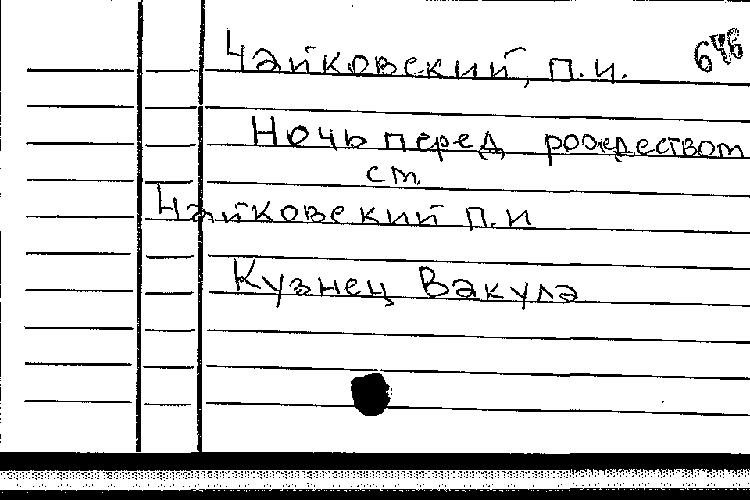 Чайковский, П.И. 646
Ночь перед рождеством
см.
Чайковский П.И
Кузнец Вакула